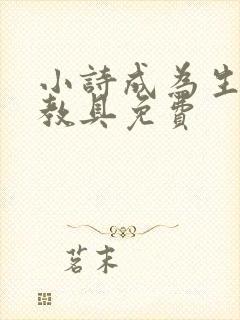 小詩成為生
教具免費
茗末